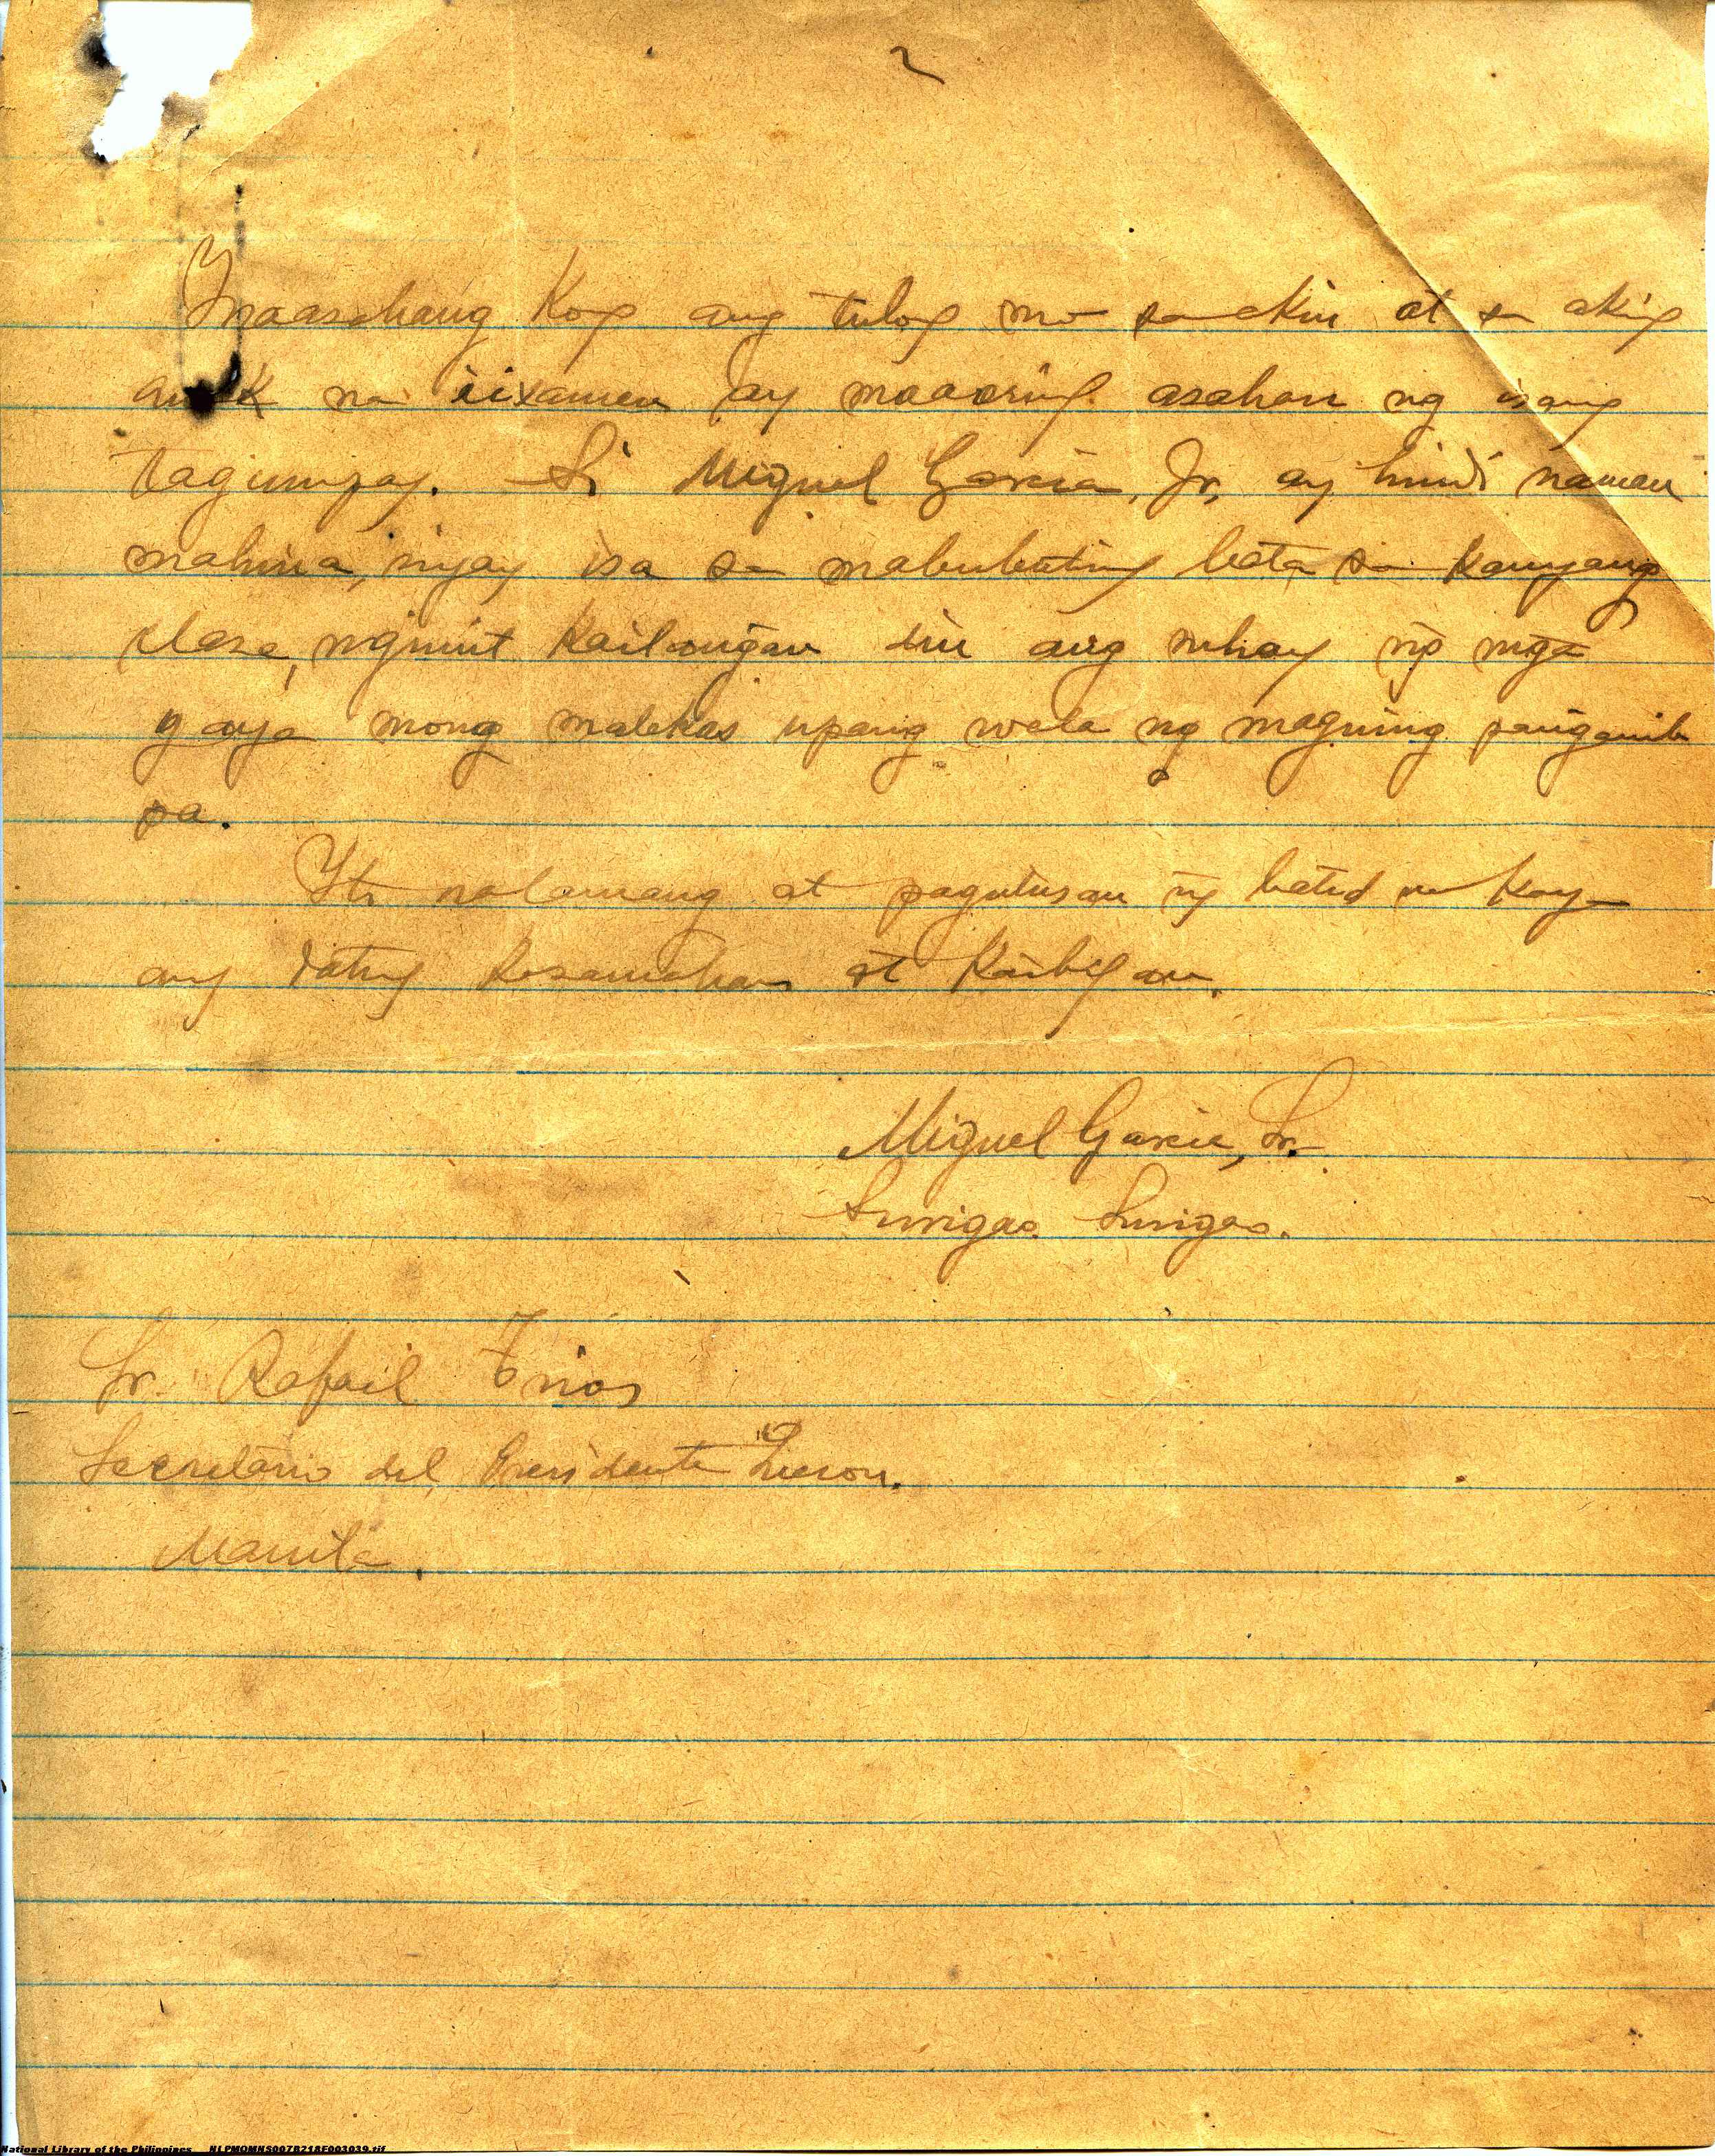 2
Ynaasahang Kog ang tulog mo sa akin at sa aking
anak na iixamen ay maaaring asahan ng isang
tagumpay. Si Miguel Garcia, Jr, ay hindi naman
mahina, niyay isa sa mabubuting bata sa kanyang
clase, nguint kailangan din ang buhay ng mga
gaya mong malakas upang wala ng maging panganib
pa.
Yto nalamang at pagutusan ng batid mo kay
ang dating kasamahan at kaibigan.
Miguel Garcia, Sr.
Surigao. Surigao.
Sr. Rafail Trias
Secretario del Presidente Quezon.
Manila.
National Library of the Philippines NLPMQMNS007B218F003039.tif